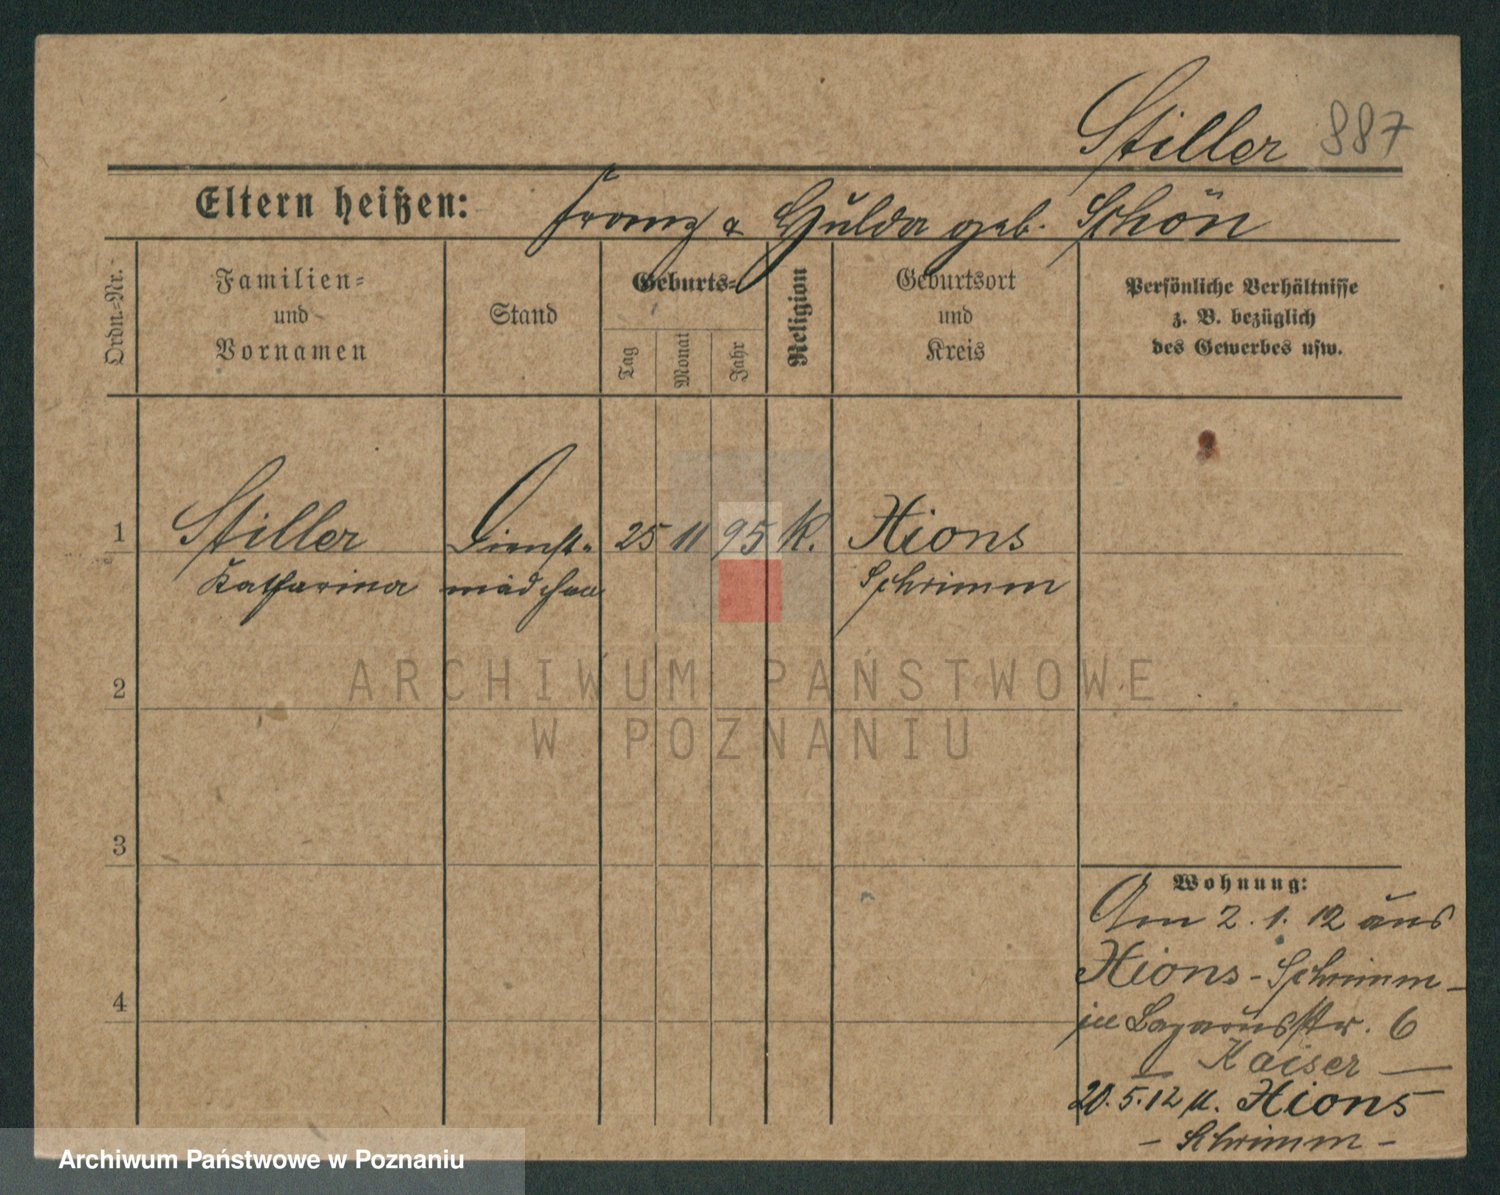 Stiller 887
Eltern heißen: Franz & Hulda geb. Schön
Ordn.-Nr.
Familien-
und
Vornamen
Stand
Geburts-
Tag
Monat
Jahr
Religion
Geburtsort
und
Kreis
Persönliche Verhältnisse
z. B. bezüglich
des Gewerbes usw.
1 Stiller Dienst- 25 11 95 K. Xions
Katharina mädchen Schrimm
2
3
4
Wohnung:
Am 2.1.12 aus
Xions - Schrimm -
in Lazarusstr. 6
- Kaiser -
20.5.12 n. Xions
- Schrimm -
ARCHIWUM PAŃSTWOWE
W POZNANIU
Archiwum Państwowe w Poznaniu